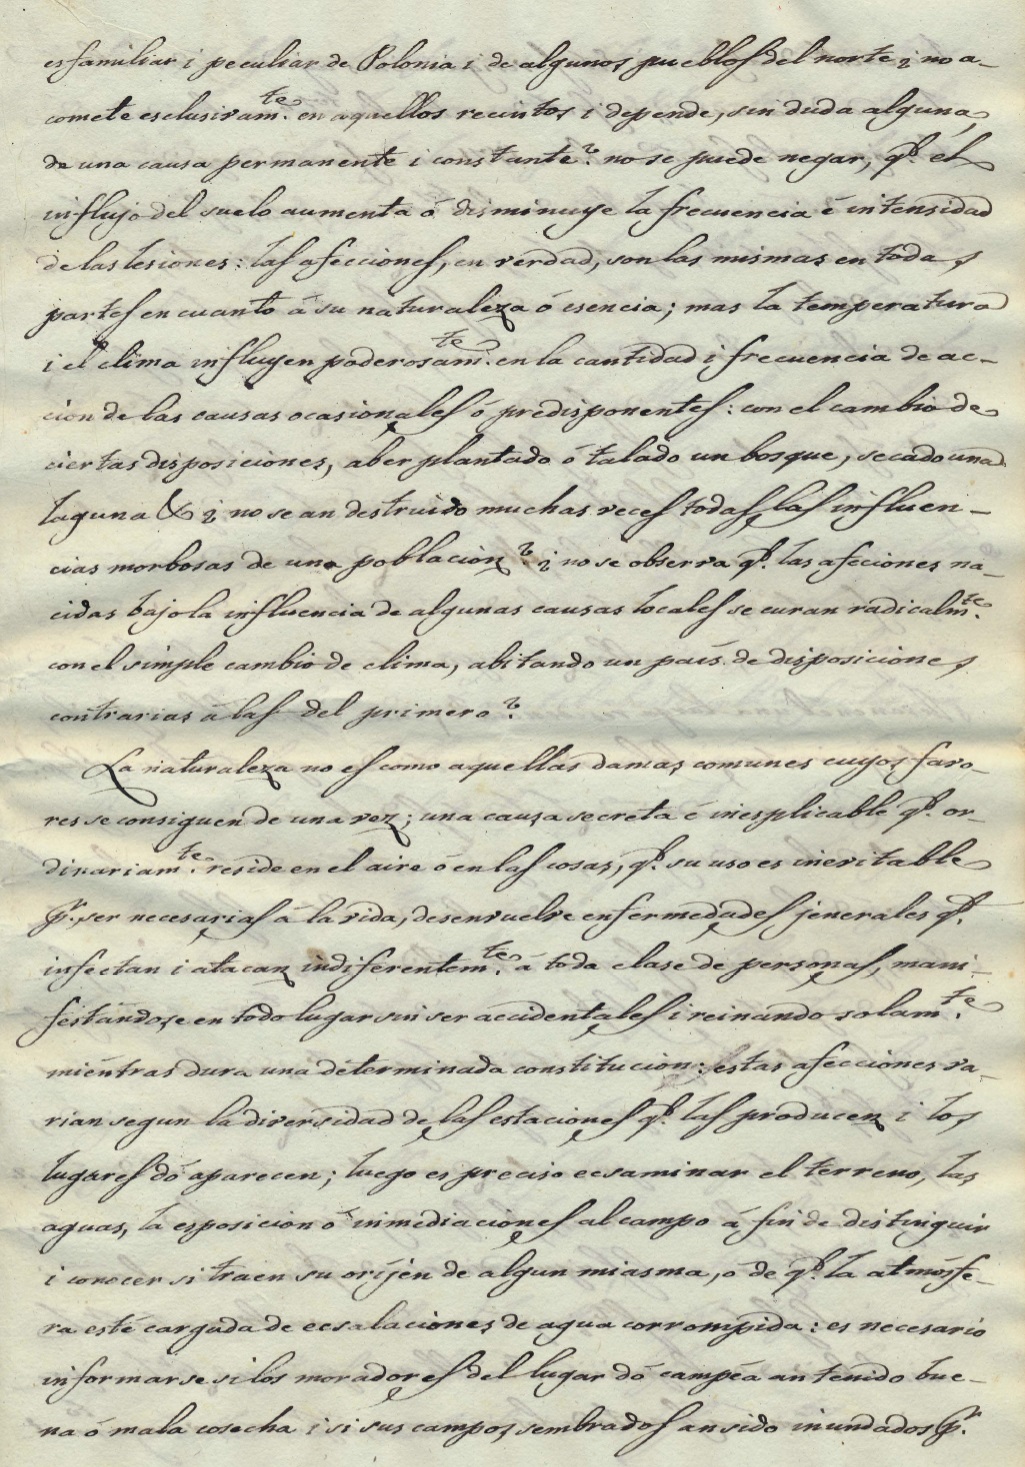 es familiar i peculiar de Polonia i de algunos pueblos del norte ¿ no a-
comete esclusivam.te en aquellos recintos i depende, sin duda alguna,
de una causa permanente i constante? no se puede negar, q.e el
influjo del suelo aumenta ó disminuye la frecuencia é intensidad
de las lesiones: las afecciones, en verdad, son las mismas en todas
partes en cuanto á su naturaleza ó esencia; mas la temperatura
i el clima influyen poderosam.te en la cantidad i frecuencia de ac-
cion de las causas ocasionales ó predisponentes: con el cambio de
ciertas disposiciones, aber plantado ó talado un bosque, secado una
laguna & ¿ no se an destruido muchas veces todas las influen-
cias morbosas de una poblacion? ¿ no se observa q.e las afeciones na-
cidas bajo la influencia de algunas causas locales se curan radicalm.te
con el simple cambio de clima, abitando un país de disposiciones
contrarias á las del primero?
La naturaleza no es como aquellas damas comunes cuyos favo-
res se consiguen de una vez; una causa secreta é inesplicable q.e or-
dinariam.te reside en el aire ó en las cosas, q.e su uso es inevitable
p.r ser necesarias á la vida, desenvuelve enfermedades jenerales q.e
infectan i atacan indiferentem.te á toda clase de personas, mani-
festándose en todo lugar sin ser accidentales i reinando solam.te
miéntras dura una determinada constitucion: estas afecciones va-
rian segun la diversidad de las estaciones q.e las producen i los
lugares dó aparecen; luego es preciso ecsaminar el terreno, las
aguas, la esposicion ó inmediaciones al campo á fin de distinguir
i conocer si traen su oríjen de algun miasma, ó de q.e la atmósfe-
ra esté cargada de ecsalaciones de agua corrompida: es necesario
informarse si los moradores del lugar dó campéa an tenido bue-
na ó mala cosecha i si sus campos sembrados an sido inundados p.r